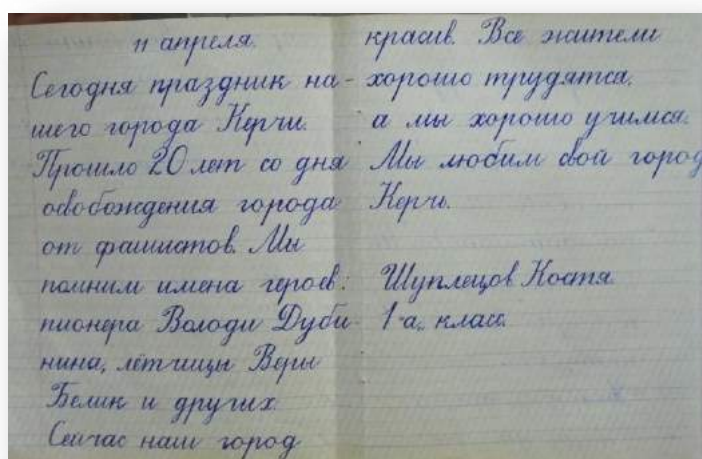 11 апреля.
Сегодня праздник на-
шего города Керчи.
Прошло 20 лет со дня
освобождения города
от фашистов. Мы
помним имена героев:
пионера Володи Дуби-
нина, лётчицы Веры
Белик и других.
Сейчас наш город
красив. Все жители
хорошо трудятся,
а мы хорошо учимся.
Мы любим свой город
Керчь.
Шуплецов Костя.
1 "а" класс.